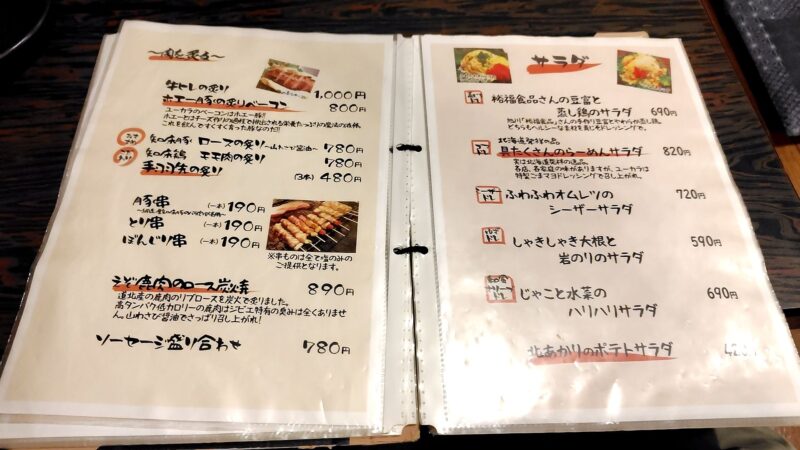 牛ヒレの炙り 1,000円
ホエー豚の炙りベーコン 800円
ユーカラのベーコンはホエー豚!!
780円
知床鶏 モモ肉の炙り 780円
手羽先の炙り (3本) 480円
豚串 (一本) 190円
とり串 (一本) 190円
ぼんじり串 (一本) 190円
※串ものは全て塩のみの
ご提供となります。
鹿肉のロース炭火焼 890円
道北産の鹿肉のリブロースを炭火で炙りました。
高タンパク低カロリーの鹿肉はジビエ特有の臭みは全くありませ
ん。山わさび醤油でさっぱり召し上がれ!
ソーセージ盛り合わせ 780円
サラダ
裕福食品さんの豆富と
蒸し鶏のサラダ 690円
北海道発祥の品
具たくさんのらーめんサラダ 820円
実は北海道発祥の逸品。
各店、各家庭の味がありますが、ユーカラは
特製ごまマヨドレッシングで召し上がれ。
ふわふわオムレツの
シーザーサラダ 720円
しゃきしゃき大根と
岩のりのサラダ 590円
じゃこと水菜の
ハリハリサラダ 690円
北あかりのポテトサラダ